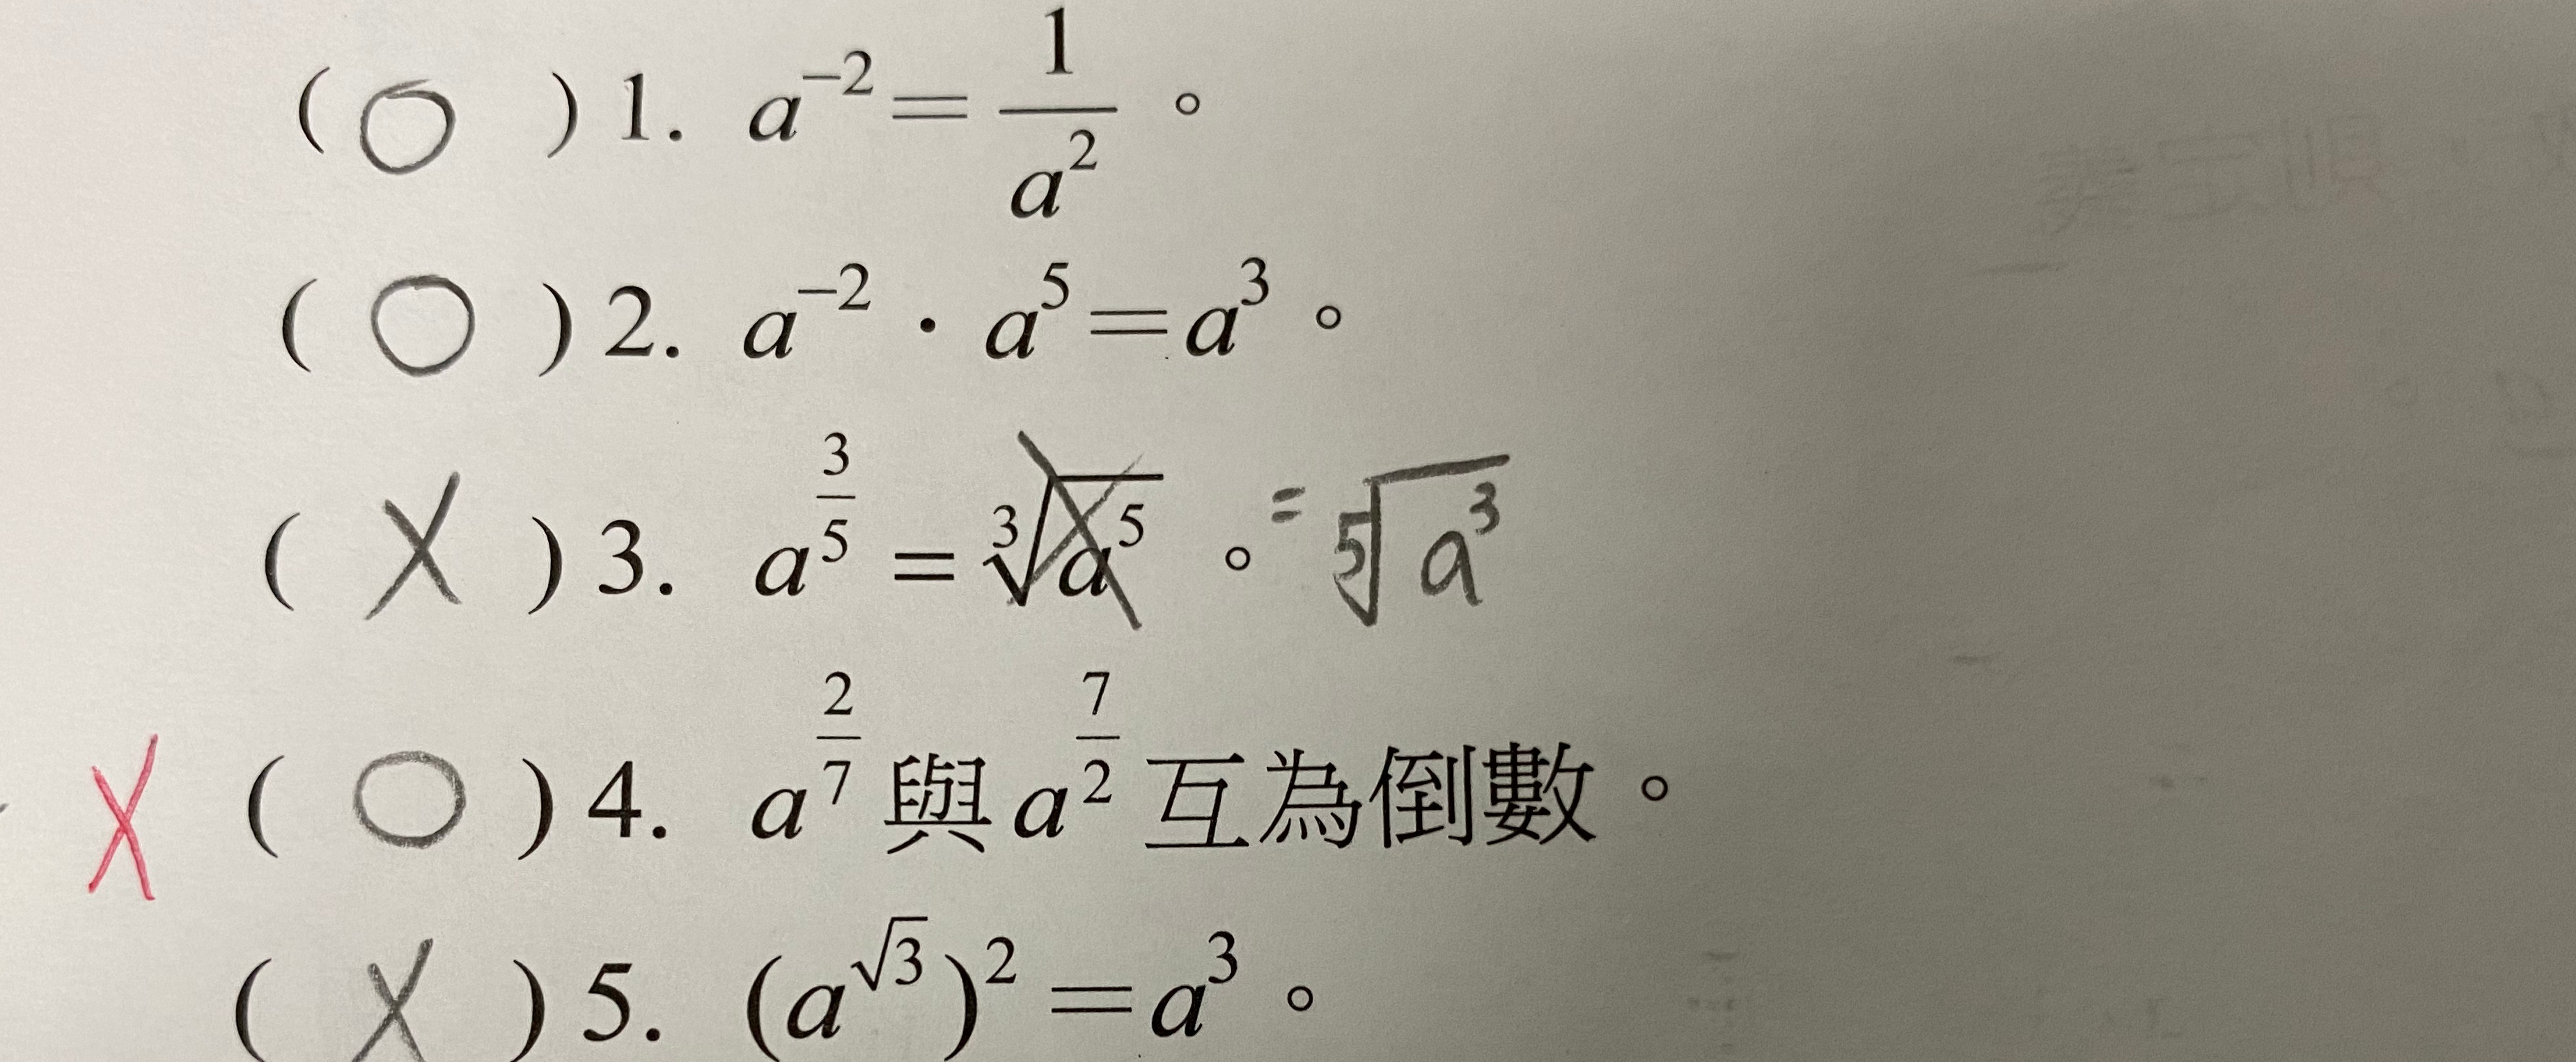 ( O ) 1. a⁻² = 1/a² 。
( O ) 2. a⁻² · a⁵ = a³ 。
( X ) 3. a^(3/5) = ∛(a⁵) 。 = ⁵√(a³)
X ( O ) 4. a^(2/7) 與 a^(7/2) 互為倒數。
( X ) 5. (a^√3)² = a³ 。